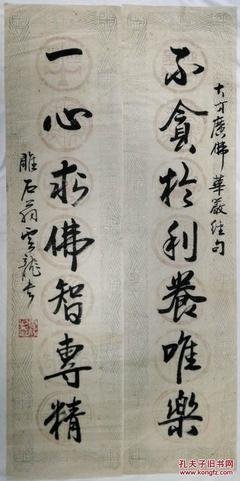 大方廣佛華嚴經句
不貪於利養唯樂
一心求佛智專精
雕石翁雲龍書
孔夫子旧书网